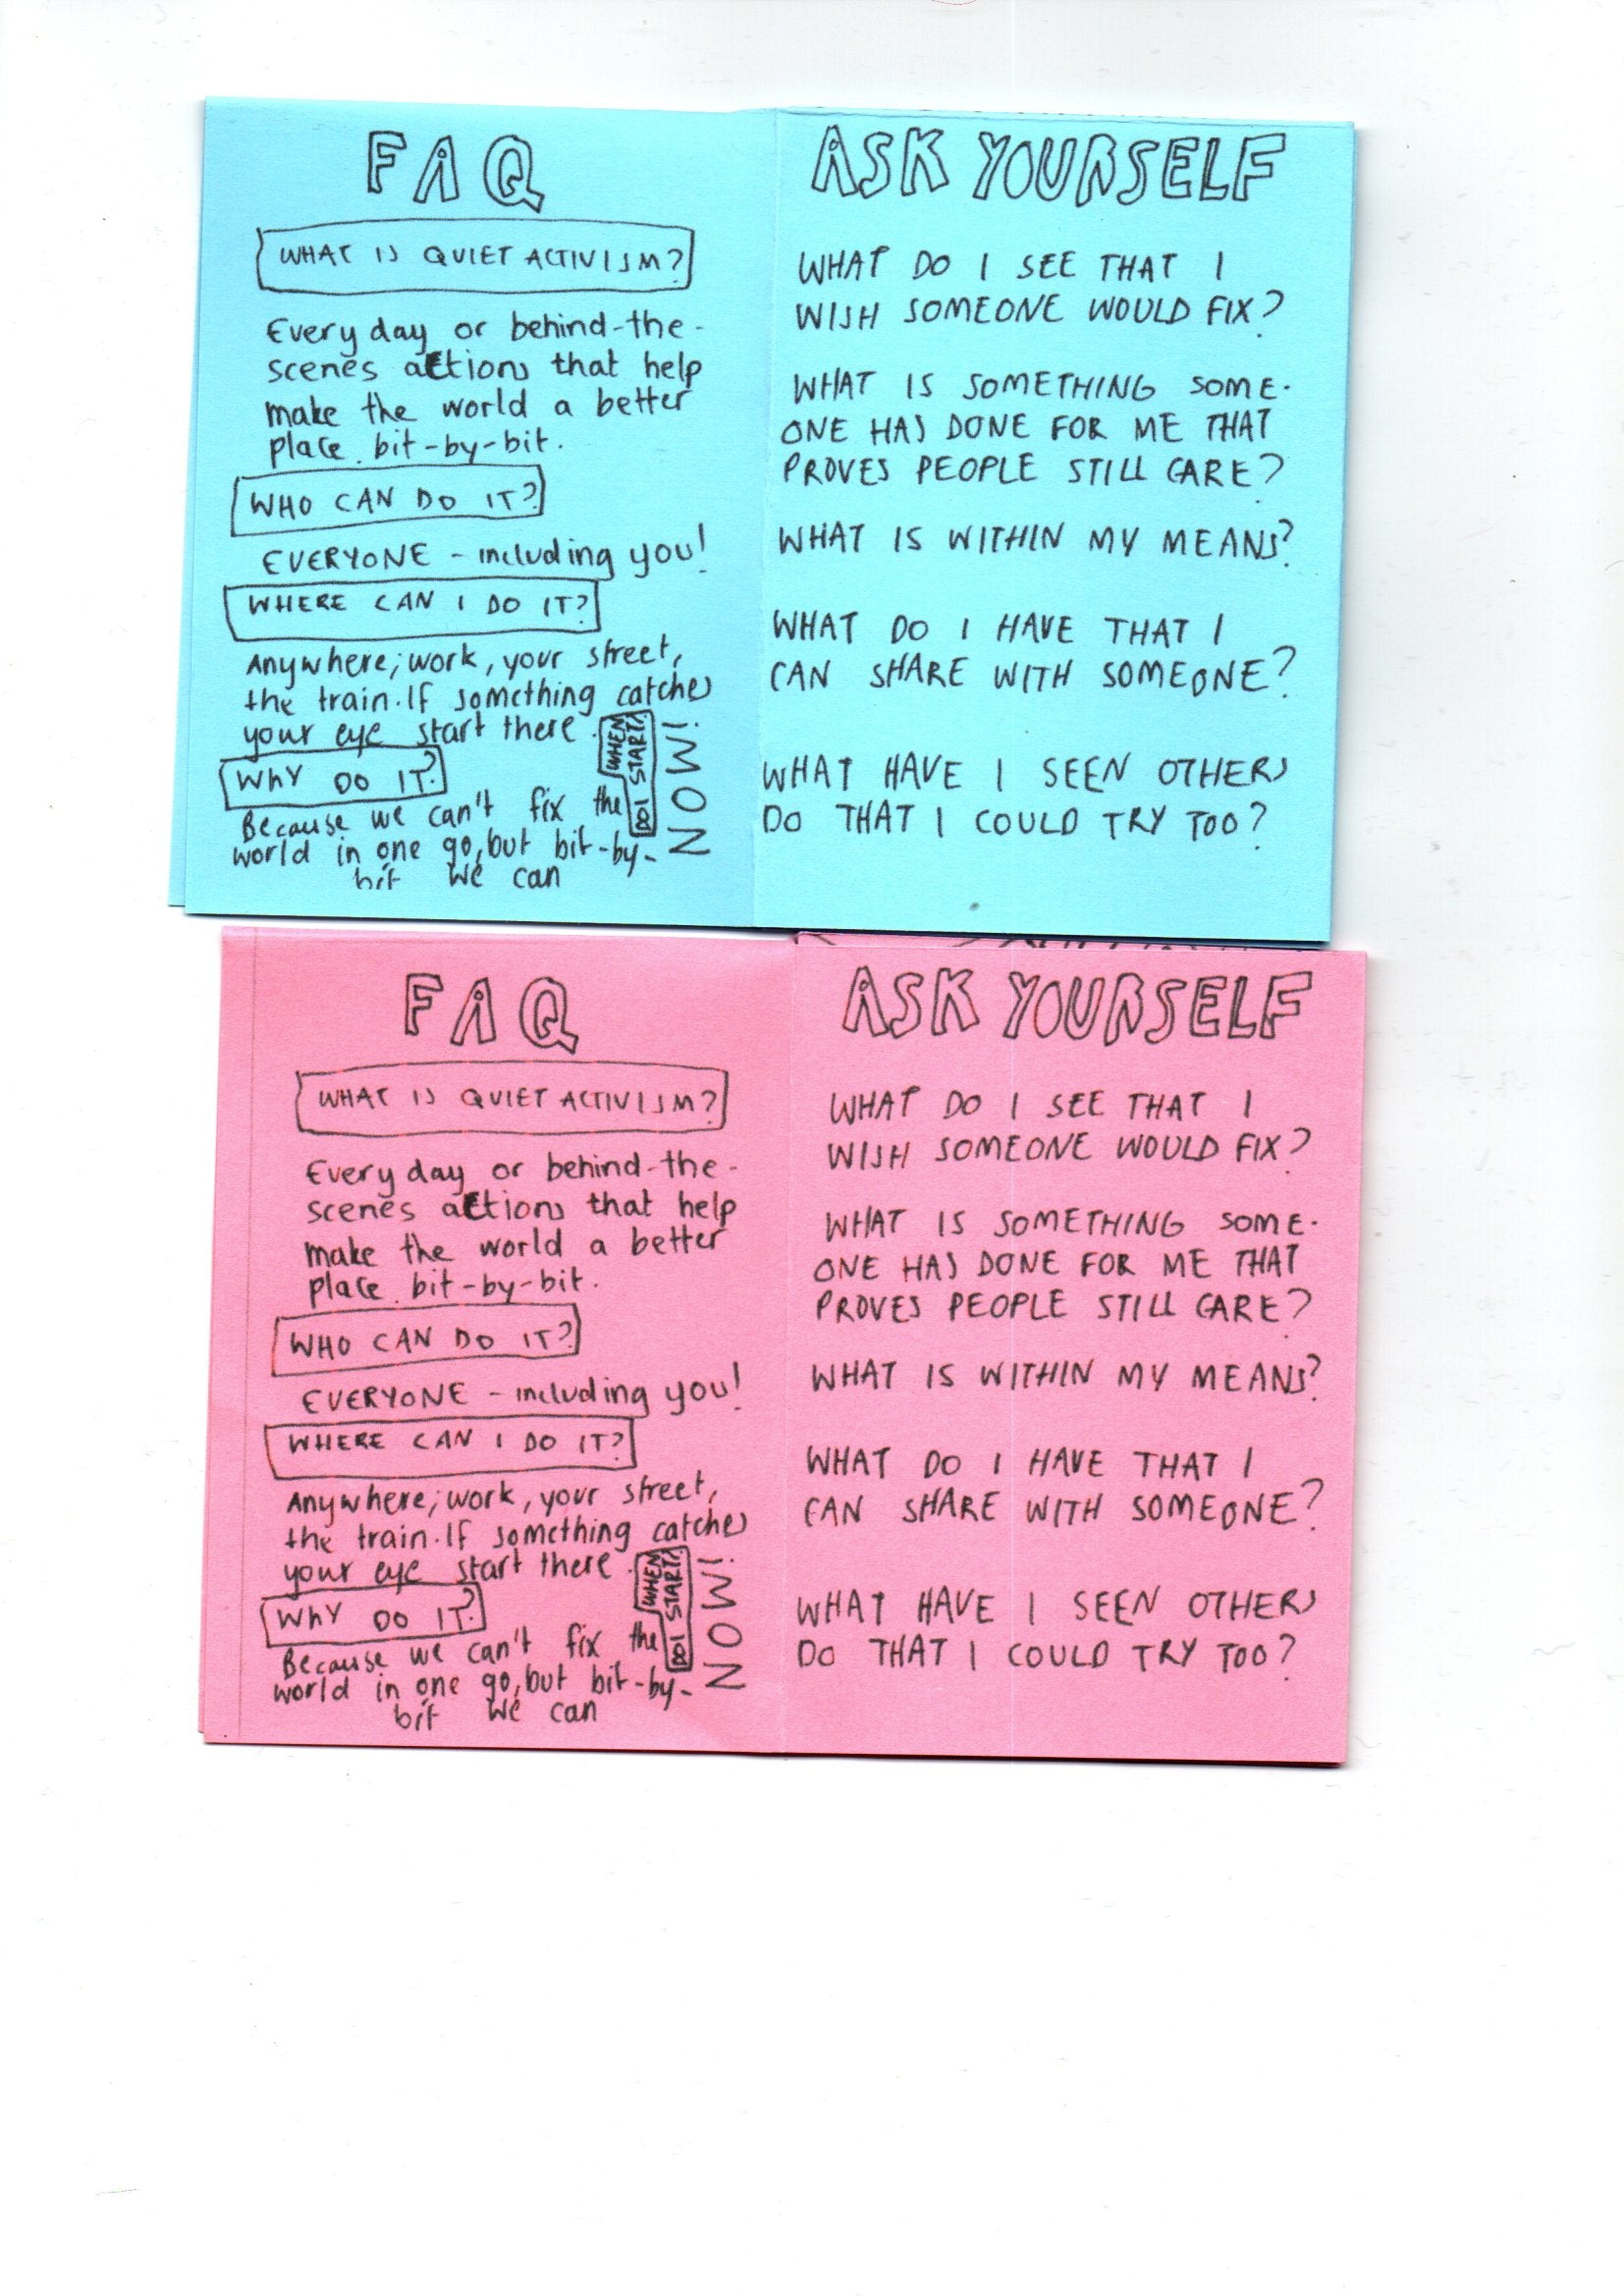 FAQ
WHAT IS QUIET ACTIVISM?
Every day or behind-the-
scenes actions that help
make the world a better
place. bit-by-bit.
WHO CAN DO IT?
EVERYONE - including you!
WHERE CAN I DO IT?
Anywhere; work, your street,
the train. If something catches
your eye start there.
WHY DO IT?
Because we can't fix the
world in one go, but bit-by-
bit we can
WHEN
DO I START?
NOW!
ASK YOURSELF
WHAT DO I SEE THAT I
WISH SOMEONE WOULD FIX?
WHAT IS SOMETHING SOME-
ONE HAS DONE FOR ME THAT
PROVES PEOPLE STILL CARE?
WHAT IS WITHIN MY MEANS?
WHAT DO I HAVE THAT I
CAN SHARE WITH SOMEONE?
WHAT HAVE I SEEN OTHERS
DO THAT I COULD TRY TOO?
FAQ
WHAT IS QUIET ACTIVISM?
Every day or behind-the-
scenes actions that help
make the world a better
place. bit-by-bit.
WHO CAN DO IT?
EVERYONE - including you!
WHERE CAN I DO IT?
Anywhere; work, your street,
the train. If something catches
your eye start there.
WHY DO IT?
Because we can't fix the
world in one go, but bit-by-
bit we can
WHEN
DO I START?
NOW!
ASK YOURSELF
WHAT DO I SEE THAT I
WISH SOMEONE WOULD FIX?
WHAT IS SOMETHING SOME-
ONE HAS DONE FOR ME THAT
PROVES PEOPLE STILL CARE?
WHAT IS WITHIN MY MEANS?
WHAT DO I HAVE THAT I
CAN SHARE WITH SOMEONE?
WHAT HAVE I SEEN OTHERS
DO THAT I COULD TRY TOO?